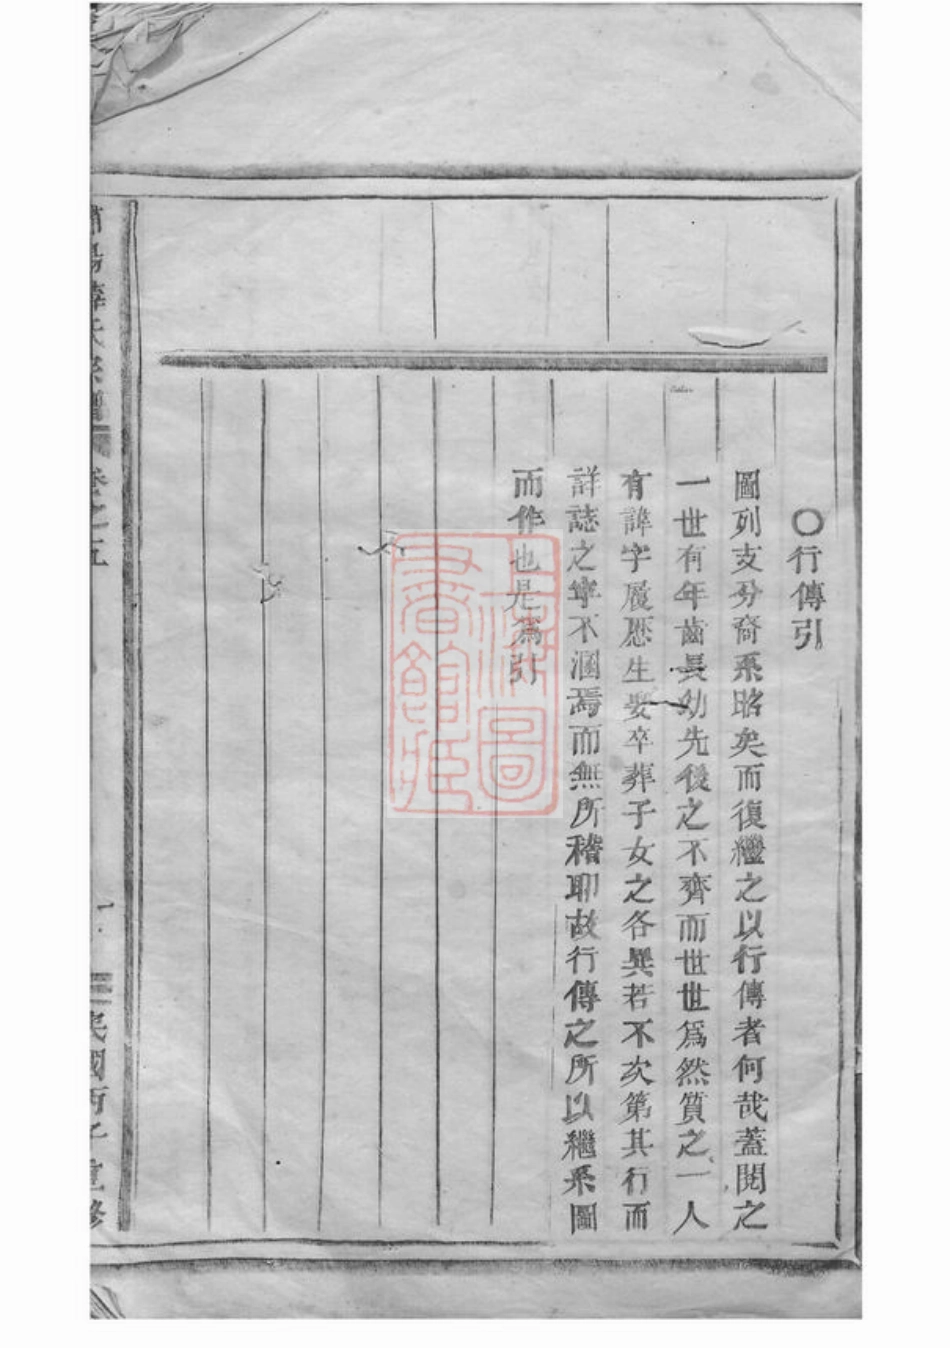 〇行傳引
圖列支分裔系昭矣而復繼之以行傳者何哉蓋閱之
一世有年齒長幼先後之不齊而世世爲然質之一人
有諱字履歷生娶卒葬子女之各異若不次第其行而
詳誌之寧不溷焉而無所稽耶故行傳之所以繼系圖
而作也是爲引
氏宗譜
卷之五
一
民國丙子重修
上海圖書館藏